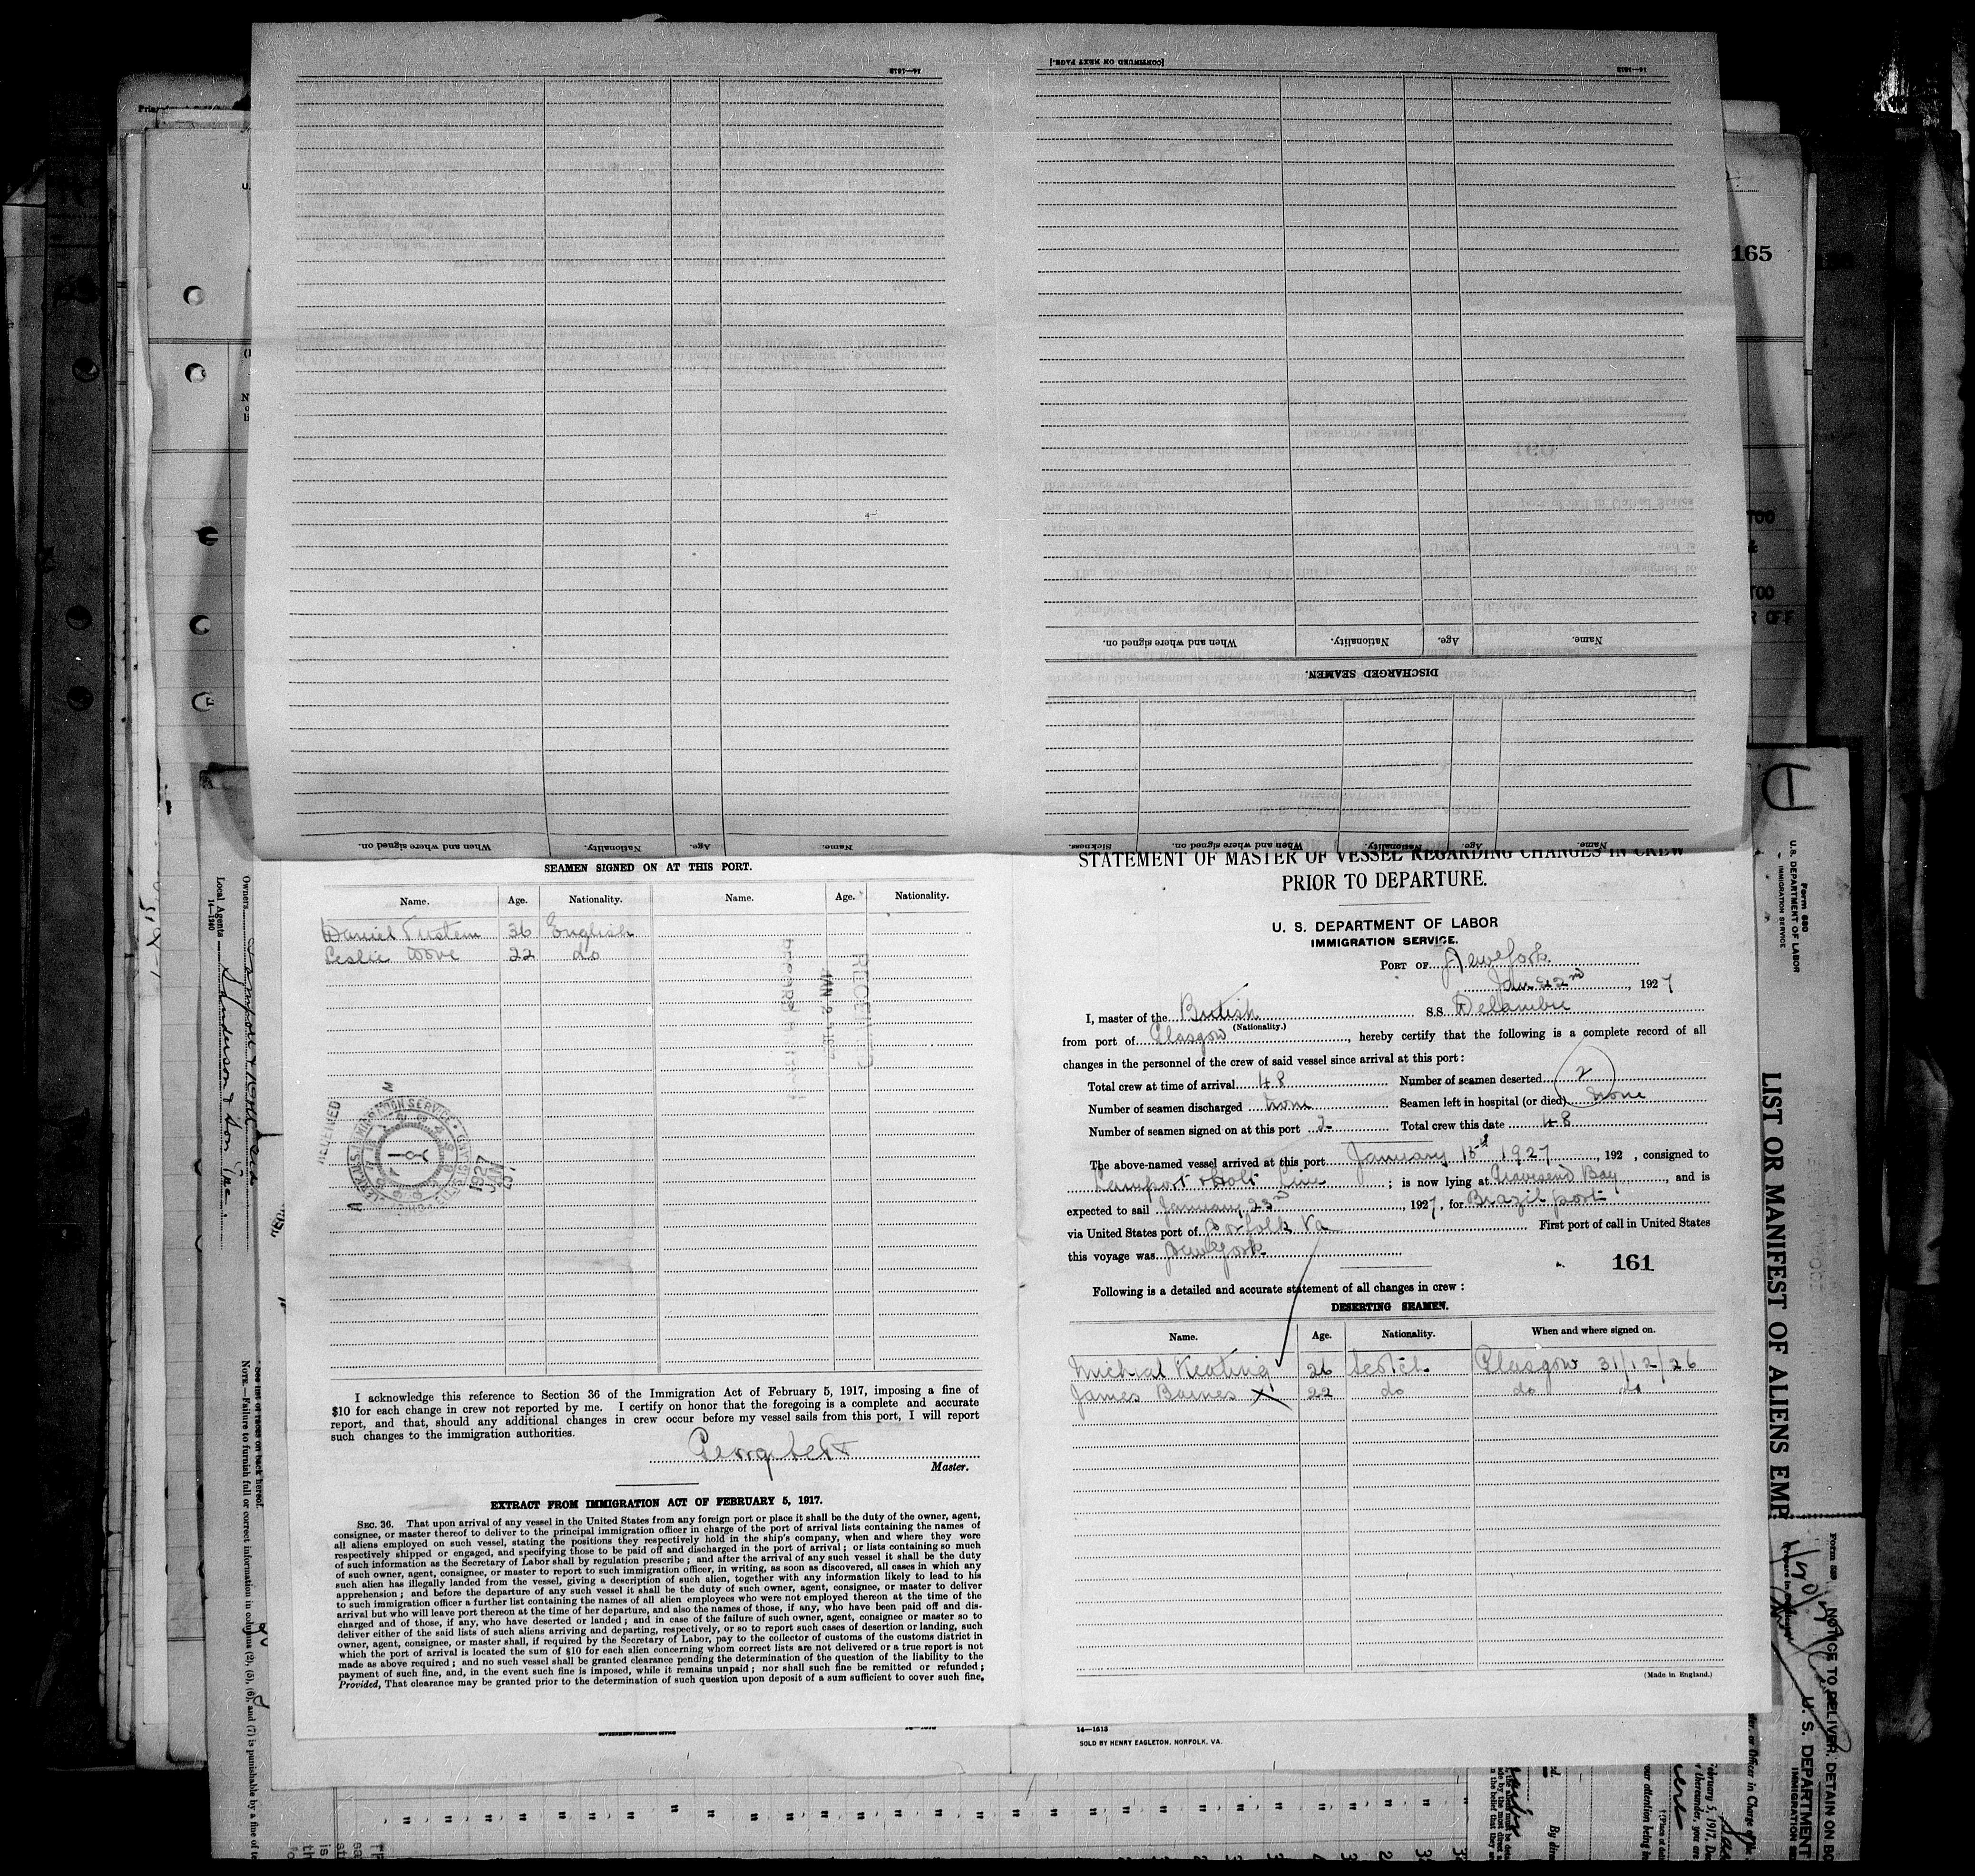 [CONTINUED ON NEXT PAGE.]
14—1613
14—1613
165
When and where signed on.
Nationality.
Age.
Name.
DISCHARGED SEAMEN.
When and where signed on.
Nationality.
Age.
Name.
Sickness.
When and where signed on.
Nationality.
Age.
Name.
SEAMEN SIGNED ON AT THIS PORT.
Name. Age. Nationality. Name. Age. Nationality.
Daniel 36 English
Leslie 22 do
RECEIVED
I acknowledge this reference to Section 36 of the Immigration Act of February 5, 1917, imposing a fine of
$10 for each change in crew not reported by me. I certify on honor that the foregoing is a complete and accurate
report, and that, should any additional changes in crew occur before my vessel sails from this port, I will report
such changes to the immigration authorities.
Master.
EXTRACT FROM IMMIGRATION ACT OF FEBRUARY 5, 1917.
SEC. 36. That upon arrival of any vessel in the United States from any foreign port or place it shall be the duty of the owner, agent,
consignee, or master thereof to deliver to the principal immigration officer in charge of the port of arrival lists containing the names of
all aliens employed on such vessel, stating the positions they respectively hold in the ship's company, when and where they were
respectively shipped or engaged, and specifying those to be paid off and discharged in the port of arrival; or lists containing so much
of such information as the Secretary of Labor shall by regulation prescribe; and after the arrival of any such vessel it shall be the duty
of such owner, agent, consignee, or master to report to such immigration officer, in writing, as soon as discovered, all cases in which any
such alien has illegally landed from the vessel, giving a description of such alien, together with any information likely to lead to his
apprehension; and before the departure of any such vessel it shall be the duty of such owner, agent, consignee, or master to deliver
to such immigration officer a further list containing the names of all alien employees who were not employed thereon at the time of the
arrival but who will leave port thereon at the time of her departure, and also the names of those, if any, who have been paid off and dis-
charged and of those, if any, who have deserted or landed; and in case of the failure of such owner, agent, consignee or master so to
deliver either of the said lists of such aliens arriving and departing, respectively, or so to report such cases of desertion or landing, such
owner, agent, consignee, or master shall, if required by the Secretary of Labor, pay to the collector of customs of the customs district in
which the port of arrival is located the sum of $10 for each alien concerning whom correct lists are not delivered or a true report is not
made as above required; and no such vessel shall be granted clearance pending the determination of the question of the liability to the
payment of such fine, and, in the event such fine is imposed, while it remains unpaid; nor shall such fine be remitted or refunded;
Provided, That clearance may be granted prior to the determination of such question upon deposit of a sum sufficient to cover such fine.
GOVERNMENT PRINTING OFFICE
STATEMENT OF MASTER OF VESSEL REGARDING CHANGES IN CREW
PRIOR TO DEPARTURE.
U. S. DEPARTMENT OF LABOR
IMMIGRATION SERVICE.
PORT OF New York
Jan 22nd, 1927
I, master of the British S.S. Delambre
(Nationality.)
from port of Glasgow, hereby certify that the following is a complete record of all
changes in the personnel of the crew of said vessel since arrival at this port:
Total crew at time of arrival 48 Number of seamen deserted 2
Number of seamen discharged none Seamen left in hospital (or died) none
Number of seamen signed on at this port 2 Total crew this date 48
The above-named vessel arrived at this port January 15th 1927, 192 , consigned to
Lamport & Holt Line; is now lying at Gravesend Bay, and is
expected to sail January 23rd, 1927, for Brazil port
via United States port of Norfolk Va First port of call in United States
this voyage was New York
161
Following is a detailed and accurate statement of all changes in crew:
DESERTING SEAMEN.
Name. Age. Nationality. When and where signed on.
Michial Keating 26 Scotch Glasgow 31/12/26
James Barnes X 22 do do do
(Made in England.)
14—1613
SOLD BY HENRY EAGLETON, NORFOLK, VA.
Owners
Local Agents Sanderson & Son Inc.
14—1240
NOTE.—Failure to furnish full or correct information in columns (2), (5), (6), and (7) is punishable by a fine of
Form 680
U. S. DEPARTMENT OF LABOR
IMMIGRATION SERVICE
LIST OR MANIFEST OF ALIENS EMP
NOTICE TO DELIVER, DETAIN ON BO
U. S. DEPARTMENT
IMMIGRATION